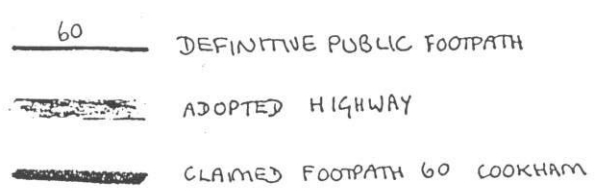 60
DEFINITIVE PUBLIC FOOTPATH
ADOPTED HIGHWAY
CLAIMED FOOTPATH 60 COOKHAM